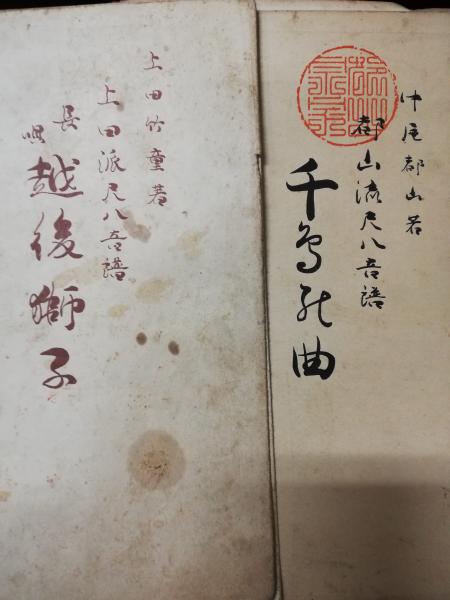 中尾都山著
都山流尺八音譜
千鳥能曲
上田竹童著
上田派尺八音譜
長唄
越後獅子